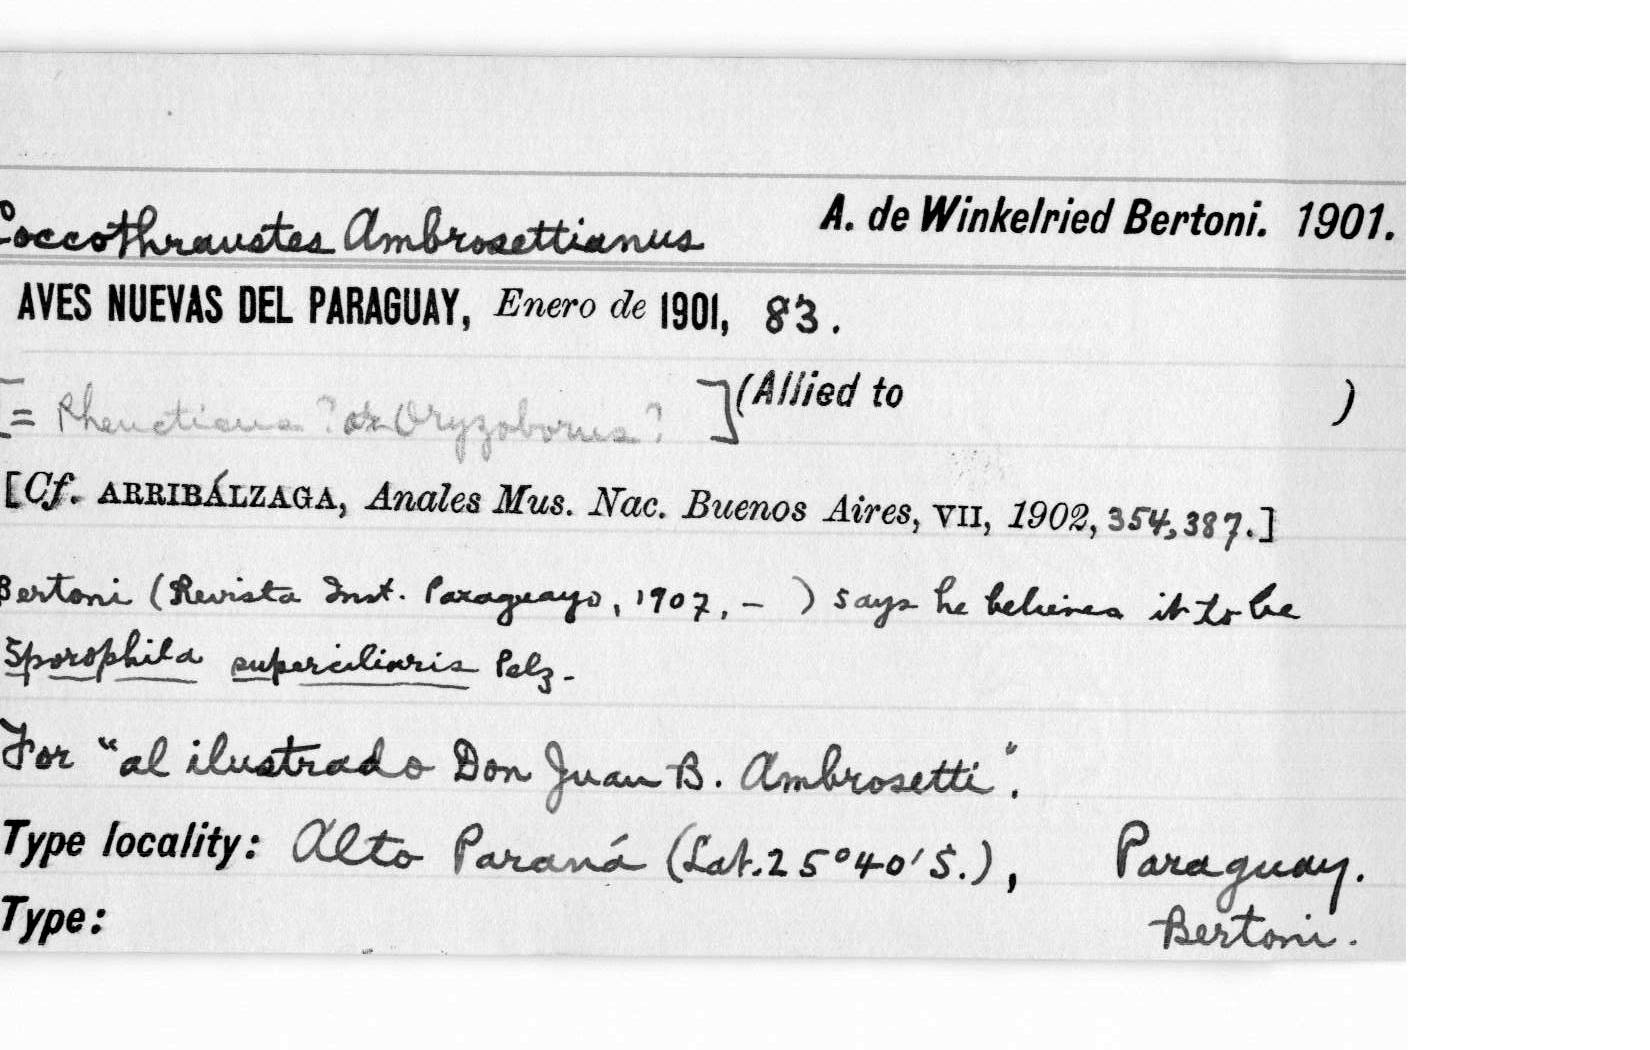 Coccothraustes Ambrosettianus A. de Winkelried Bertoni. 1901.
AVES NUEVAS DEL PARAGUAY, Enero de 1901, 83.
[= ? or Oryzoborus? ] (Allied to )
[Cf. ARRIBÁLZAGA, Anales Mus. Nac. Buenos Aires, VII, 1902, 354, 387.]
Bertoni (Revista Inst. Paraguayo, 1907, – ) says he believes it to be
Sporophila superciliaris Pelz.
For "al ilustrado Don Juan B. Ambrosetti".
Type locality: Alto Paraná (Lat. 25°40'S.), Paraguay.
Type: Bertoni.